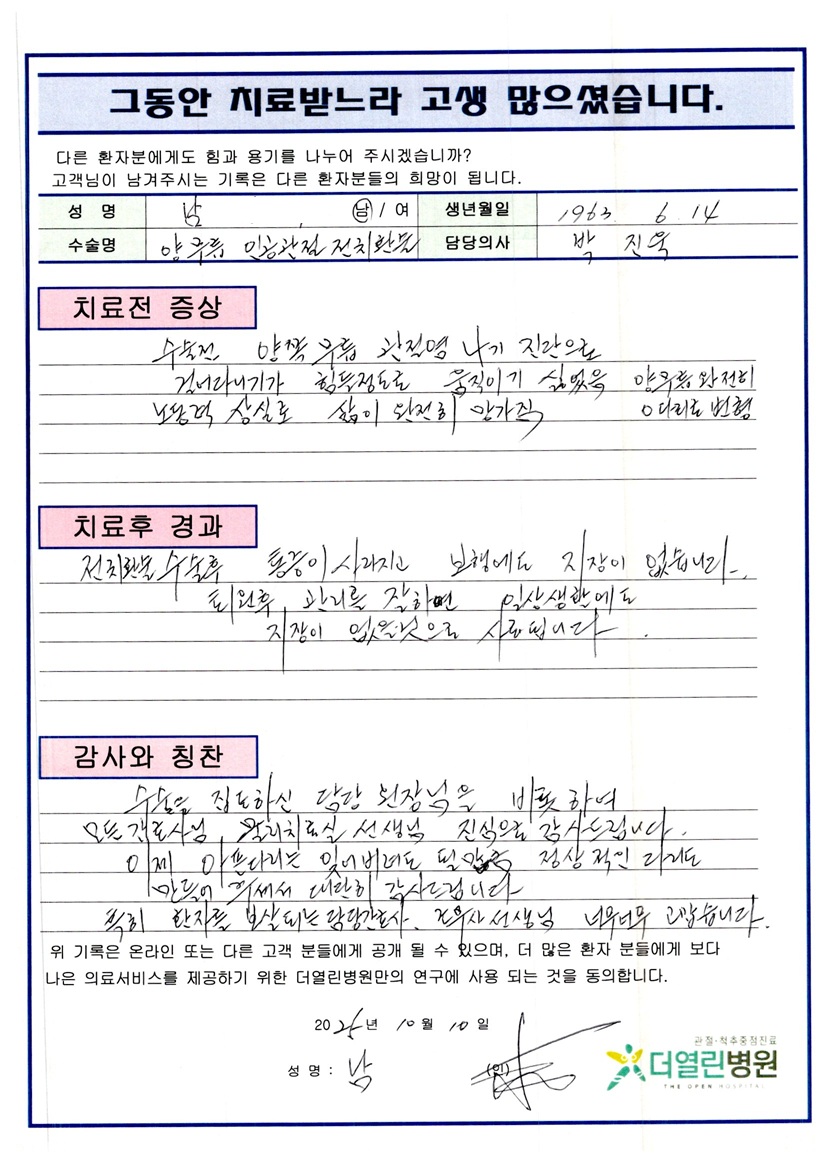 그동안 치료받느라 고생 많으셨습니다.
다른 환자분에게도 힘과 용기를 나누어 주시겠습니까?
고객님이 남겨주시는 기록은 다른 환자분들의 희망이 됩니다.
성 명 남 남 / 여 생년월일 1963. 6. 14
수술명 양 무릎 인공관절 전치환술 담당의사 박 진욱
치료전 증상
수술전 양쪽 무릎 관절염 나기 진단으로
걸어다니기가 힘들정도로 움직이기 싫었음 양무릎 완전히
노동력 상실로 삶이 완전히 망가짐 O다리로 변형
치료후 경과
전치환술 수술후 통증이 사라지고 보행에도 지장이 없습니다.
퇴원후 관리를 잘하면 일상생활에도
지장이 없을것으로 사료됩니다.
감사와 칭찬
수술을 집도하신 담당 원장님을 비롯하여
모든 간호사님, 물리치료실 선생님 진심으로 감사드립니다.
이제 아픈다리는 잊어버려도 될 만큼 정상적인 다리로
만들어 주셔서 대단히 감사드립니다
특히 환자를 보살피는 담당간호사. 간무사 선생님 너무너무 고맙습니다.
위 기록은 온라인 또는 다른 고객 분들에게 공개 될 수 있으며, 더 많은 환자 분들에게 보다
나은 의료서비스를 제공하기 위한 더열린병원만의 연구에 사용 되는 것을 동의합니다.
2025년 10월 10일
성 명 : 남 (인)
관절·척추중점진료
더열린병원
THE OPEN HOSPITAL